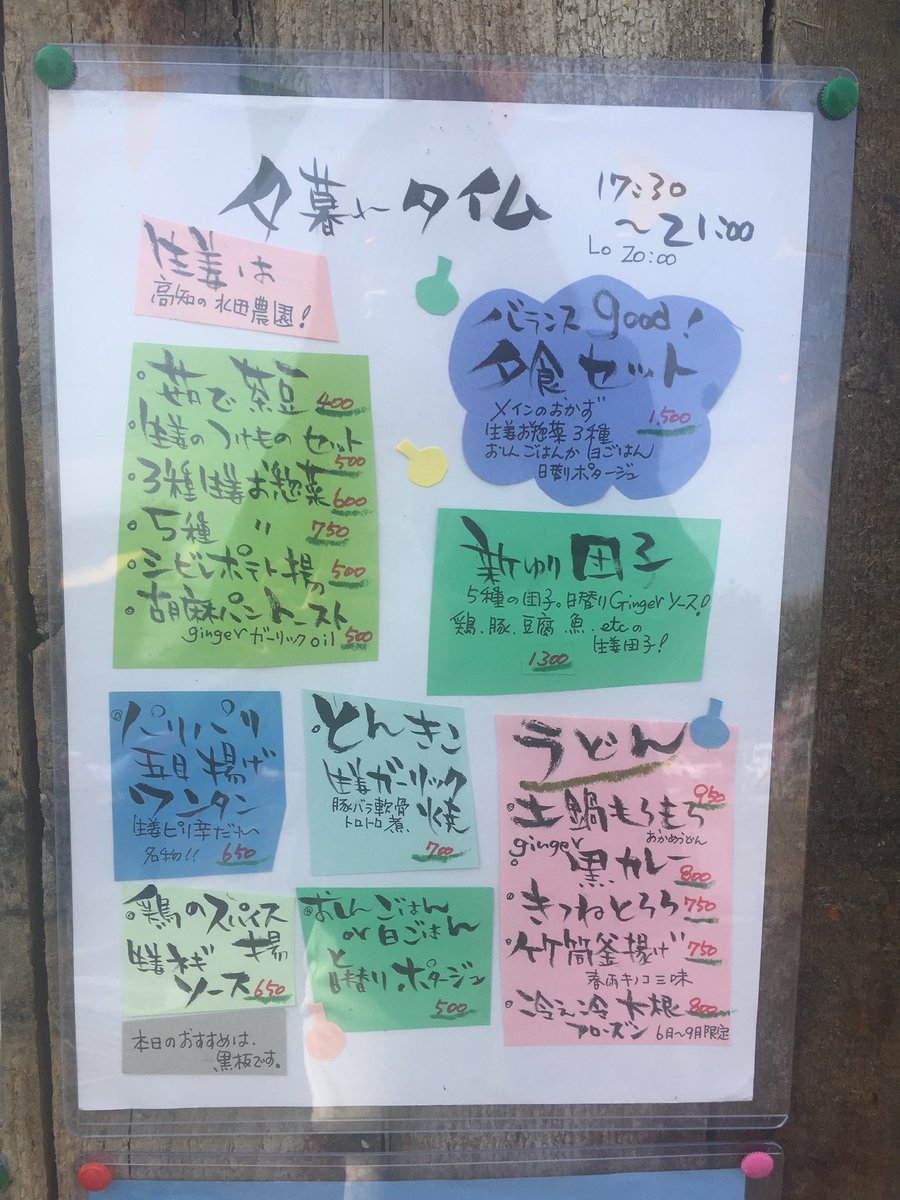 夕暮れタイム
17:30
~21:00
Lo 20:00
生姜は
高知の水田農園!
茹で茶豆 400
生姜のつけものセット
500
3種生姜お惣菜
600
5種 〃 750
シビレポテト揚の 500
胡麻パントースト
gingerガーリックoil 500
バランスgood!
夕食セット
メインのおかず 1,500
生姜お惣菜3種
おしんごはんか白ごはん
日替りポタージュ
新ゆり団子
5種の団子。日替りGingerソース!
鶏、豚、豆腐、魚、etcの
生姜団子!
1300
パリパリ
五目揚げ
ワンタン
生姜ピリ辛だれ
名物!! 650
とんきこ
生姜ガーリック
豚バラ軟骨
トロトロ煮、焼
700
うどん
950
土鍋もろもろ
おかめうどん
ginger
黒カレー
800
きつねとろろ 750
竹筒釜揚げ 750
春雨キノコ三味
冷え冷大根 800
フローズン 6月~9月限定
鶏のスパイス
揚
生姜ネギ
ソース 650
おしんごはん
or白ごはん
と
日替りポタージュ
500
本日のおすすめは、
黒板です。